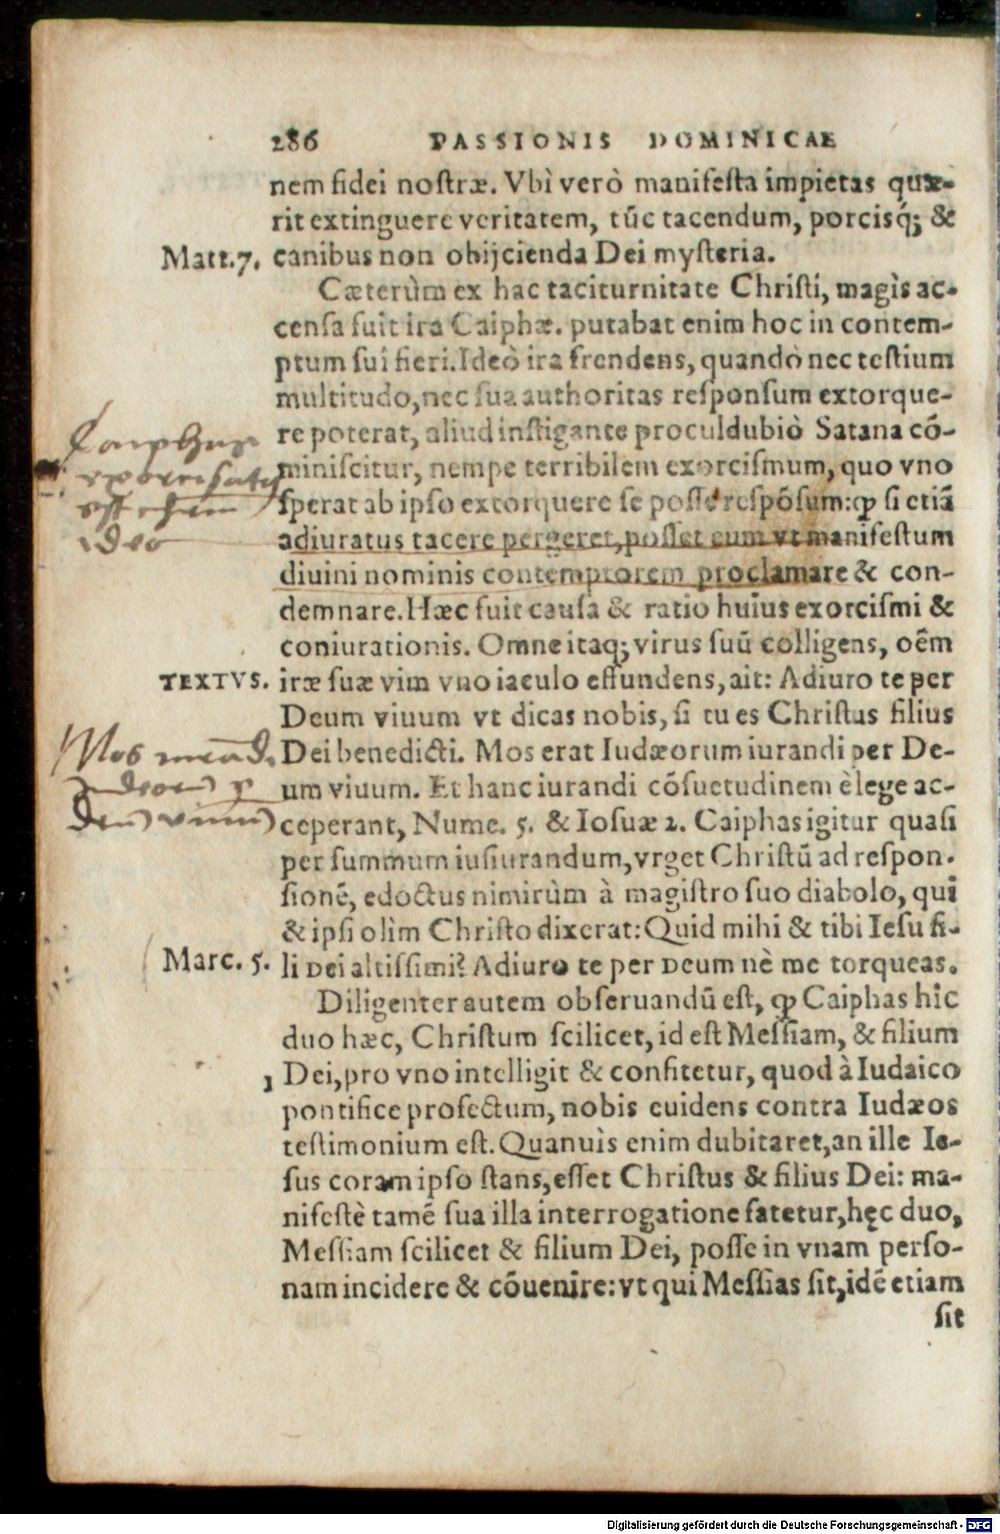 286 PASSIONIS DOMINICAE
nem fidei nostræ. Vbì verò manifesta impietas quæ-
rit extinguere veritatem, tūc tacendum, porcisq́; &
Matt.7. canibus non obijcienda Dei mysteria.
Cæterùm ex hac taciturnitate Christi, magìs ac-
censa fuit ira Caiphæ. putabat enim hoc in contem-
ptum sui fieri. Ideò ira frendens, quandò nec testium
multitudo, nec sua authoritas responsum extorque-
re poterat, aliud instigante proculdubiò Satana cō-
miniscitur, nempe terribilem exorcismum, quo vno
sperat ab ipso extorquere se posse respōsum: ꝙ si etiā
adiuratus tacere pergeret, posset eum vt manifestum
diuini nominis contemptorem proclamare & con-
demnare. Hæc fuit causa & ratio huius exorcismi &
coniurationis. Omne itaq; virus suū colligens, oēm
TEXTVS. iræ suæ vim vno iaculo effundens, ait: Adiuro te per
Deum viuum vt dicas nobis, si tu es Christus filius
Mos
Dei benedicti. Mos erat Iudæorum iurandi per De-
um viuum. Et hanc iurandi cōsuetudinem è lege ac-
ceperant, Nume. 5. & Iosuæ 2. Caiphas igitur quasi
per summum iusiurandum, vrget Christū ad respon-
sionē, edoctus nimirùm à magistro suo diabolo, qui
& ipsi olìm Christo dixerat: Quid mihi & tibi Iesu fi-
Marc. 5. li Dei altissimi? Adiuro te per Deum nè me torqueas.
Diligenter autem obseruandū est, ꝙ Caiphas hîc
duo hæc, Christum scilicet, id est Messiam, & filium
Dei, pro vno intelligit & confitetur, quod à Iudaico
pontifice profectum, nobis euidens contra Iudæos
testimonium est. Quanuìs enim dubitaret, an ille Ie-
sus coram ipso stans, esset Christus & filius Dei: ma-
nifestè tamē sua illa interrogatione fatetur, hęc duo,
Messiam scilicet & filium Dei, posse in vnam perso-
nam incidere & cōuenire: vt qui Messias sit, idē etiam
sit
Digitalisierung gefördert durch die Deutsche Forschungsgemeinschaft - DFG